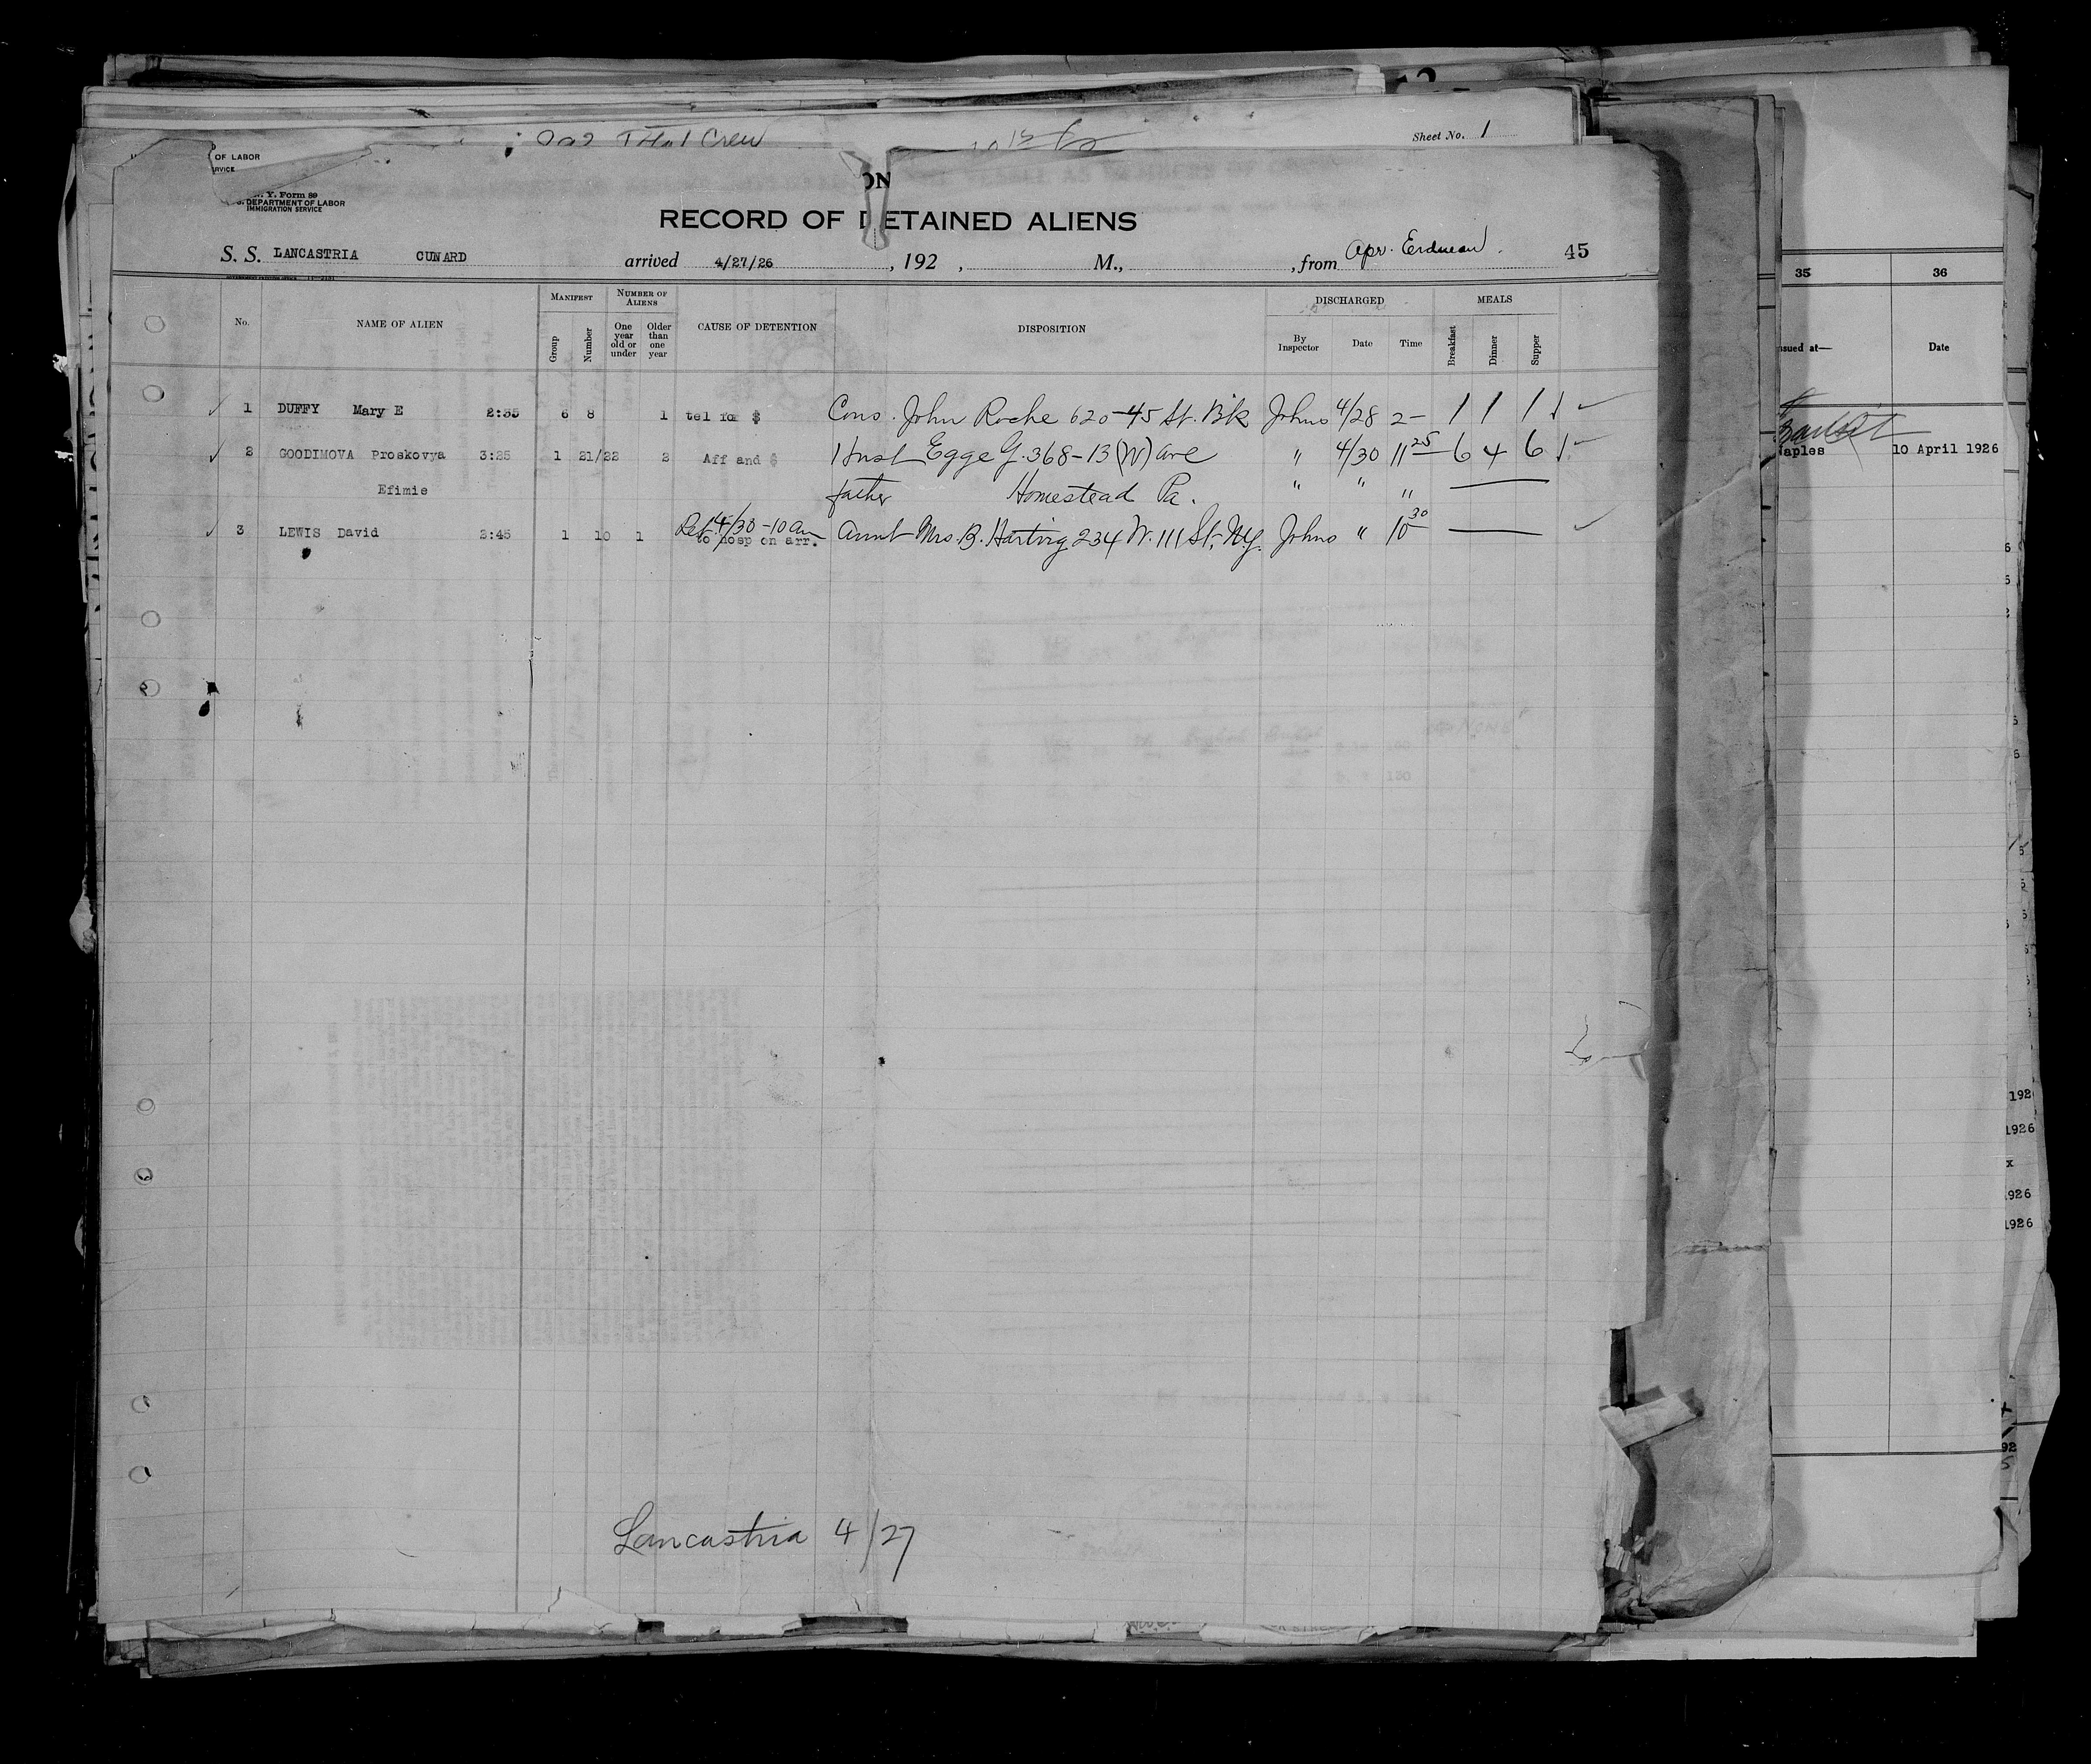 Hot Crew
Sheet No. 1
OF LABOR
Y. Form 89
DEPARTMENT OF LABOR
IMMIGRATION SERVICE
ON
RECORD OF DETAINED ALIENS
S. S. LANCASTRIA CUNARD arrived 4/27/26 , 192 , M., , from Apr. Erdman 45
MANIFEST NUMBER OF ALIENS DISCHARGED MEALS
No. NAME OF ALIEN Group Number One year old or under Older than one year CAUSE OF DETENTION DISPOSITION By Inspector Date Time Breakfast Dinner Supper
1 DUFFY Mary E 2:35 6 8 1 tel for $ Cons. John Roche 620-45 St. Bk Johns 4/28 2- 1 1 1
2 GOODIMOVA Proskovya 3:25 1 21/22 2 Aff and $ Hust Egge G. 368-13 (W) Ave " 4/30 11 25 6 4 6
Efimie father Homestead Pa. " " "
3 LEWIS David 2:45 1 10 1 Ret 4/30-10 am to hosp on arr. Aunt Mrs. B. Harting 234 W. 111 St, N.Y. Johns " 10 30
Lancastria 4/27
35 36
sued at— Date
Naples 10 April 1926
192
1926
x
1926
1926